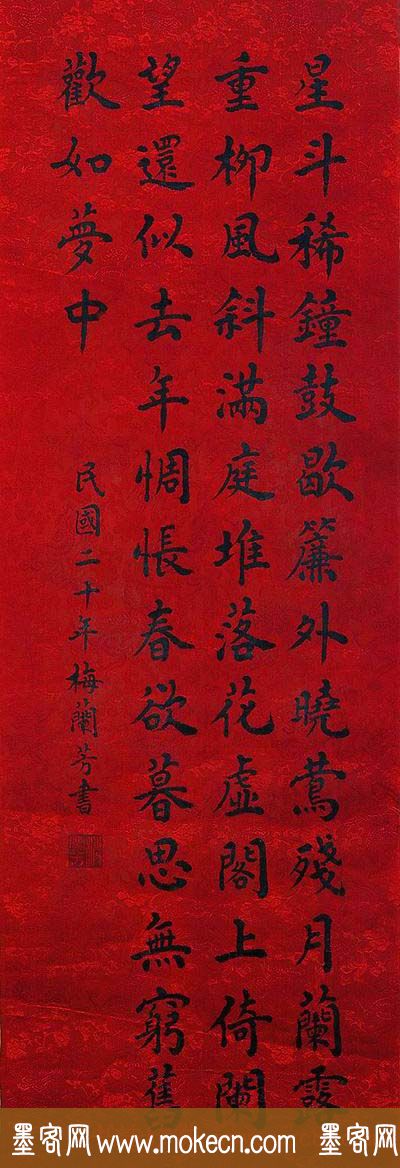 星斗稀鐘鼓歇簾外曉鶯殘月蘭露
重柳風斜滿庭堆落花虛閣上倚闌
望還似去年惆悵春欲暮思無窮舊
歡如夢中
民國二十年梅蘭芳書
墨客网www.mokecn.com 墨客网